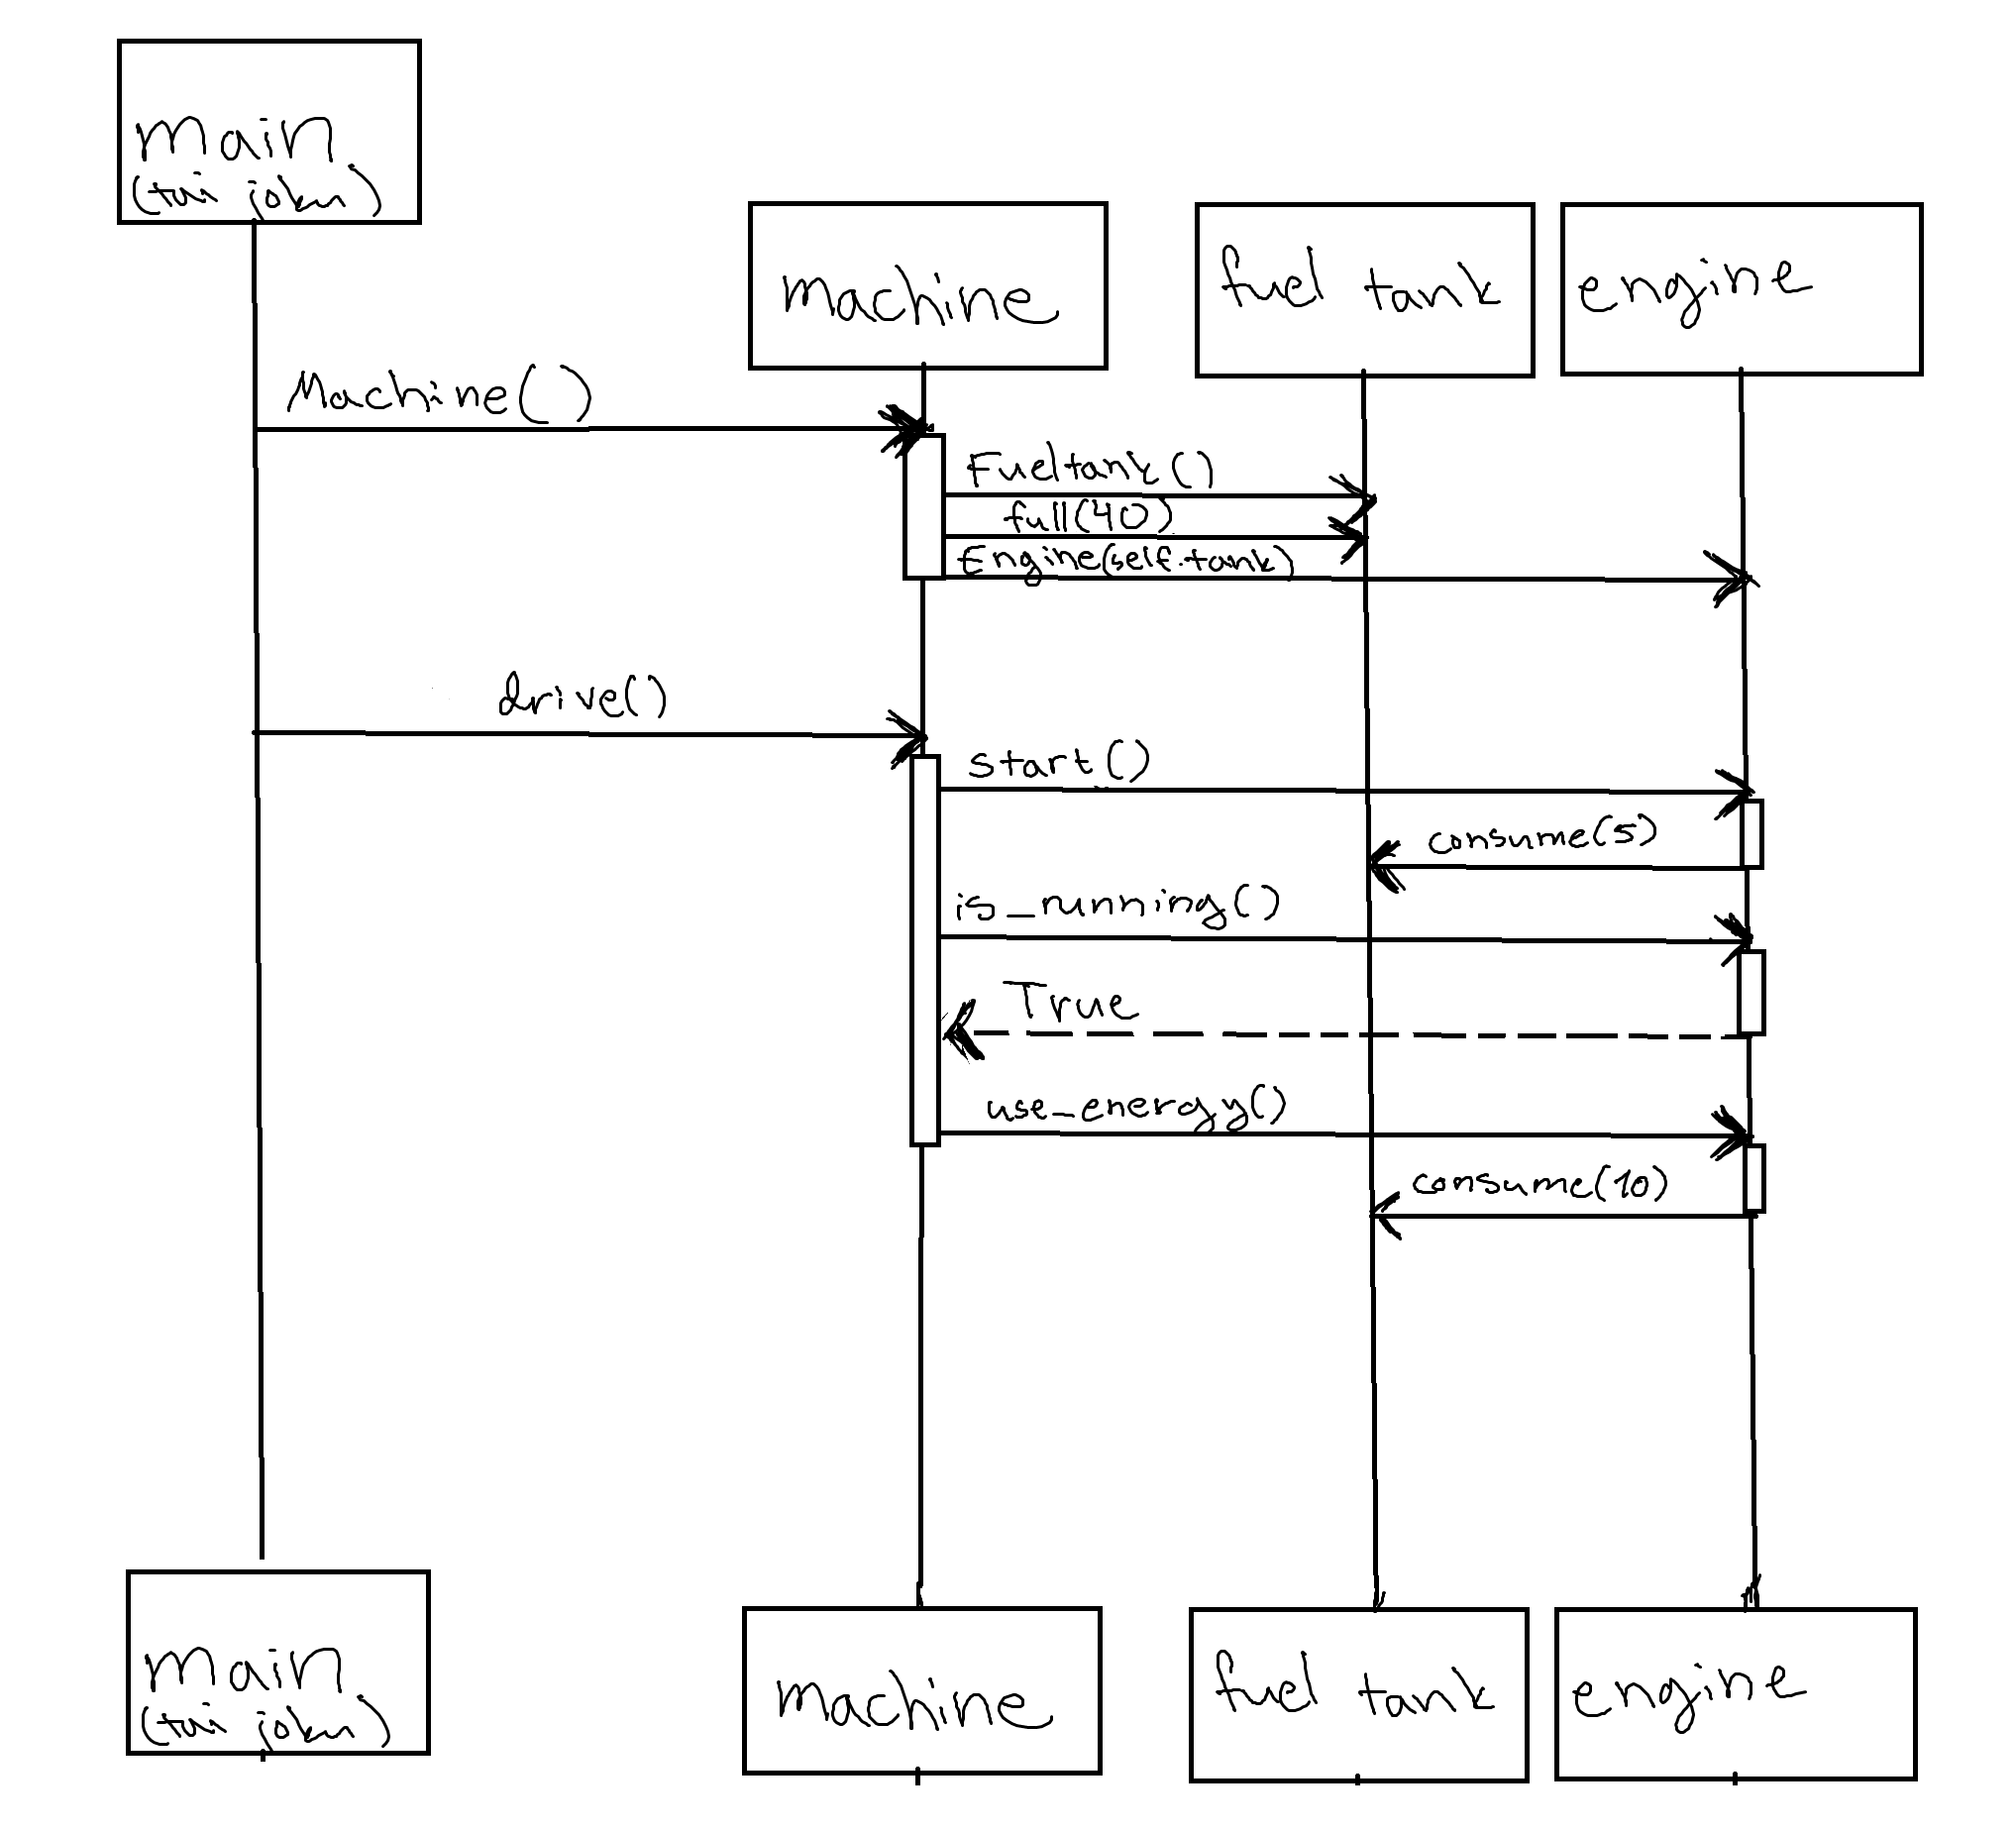 main
(tai joku)
machine
fuel tank
engine
Machine()
Fueltank()
full(40)
Engine(self.tank)
drive()
start()
consume(5)
is_running()
True
use_energy()
consume(10)
main
(tai joku)
machine
fuel tank
engine